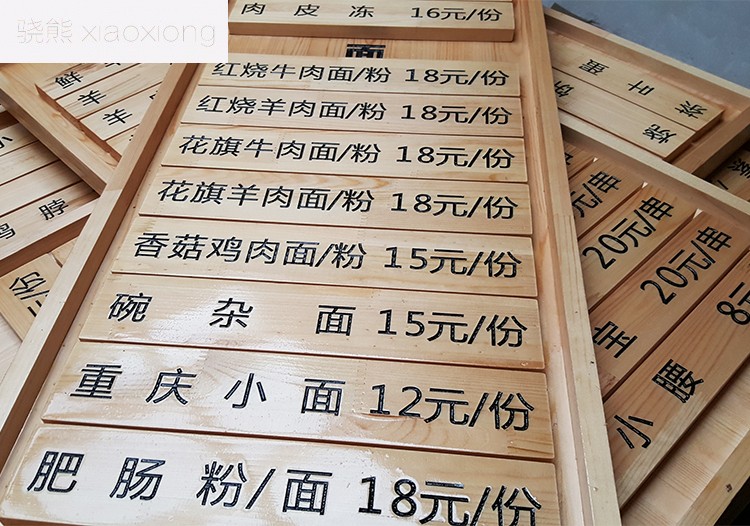 骁熊 xiaoxiong
肉皮冻 16元/份
面
红烧牛肉面/粉 18元/份
红烧羊肉面/粉 18元/份
花旗牛肉面/粉 18元/份
花旗羊肉面/粉 18元/份
香菇鸡肉面/粉 15元/份
碗杂面 15元/份
重庆小面 12元/份
肥肠粉/面 18元/份
茶叶蛋
烧饼
元/串
20元/串
20元/串
宝
小腰
8元
羊
羊
小
鸡脖
份